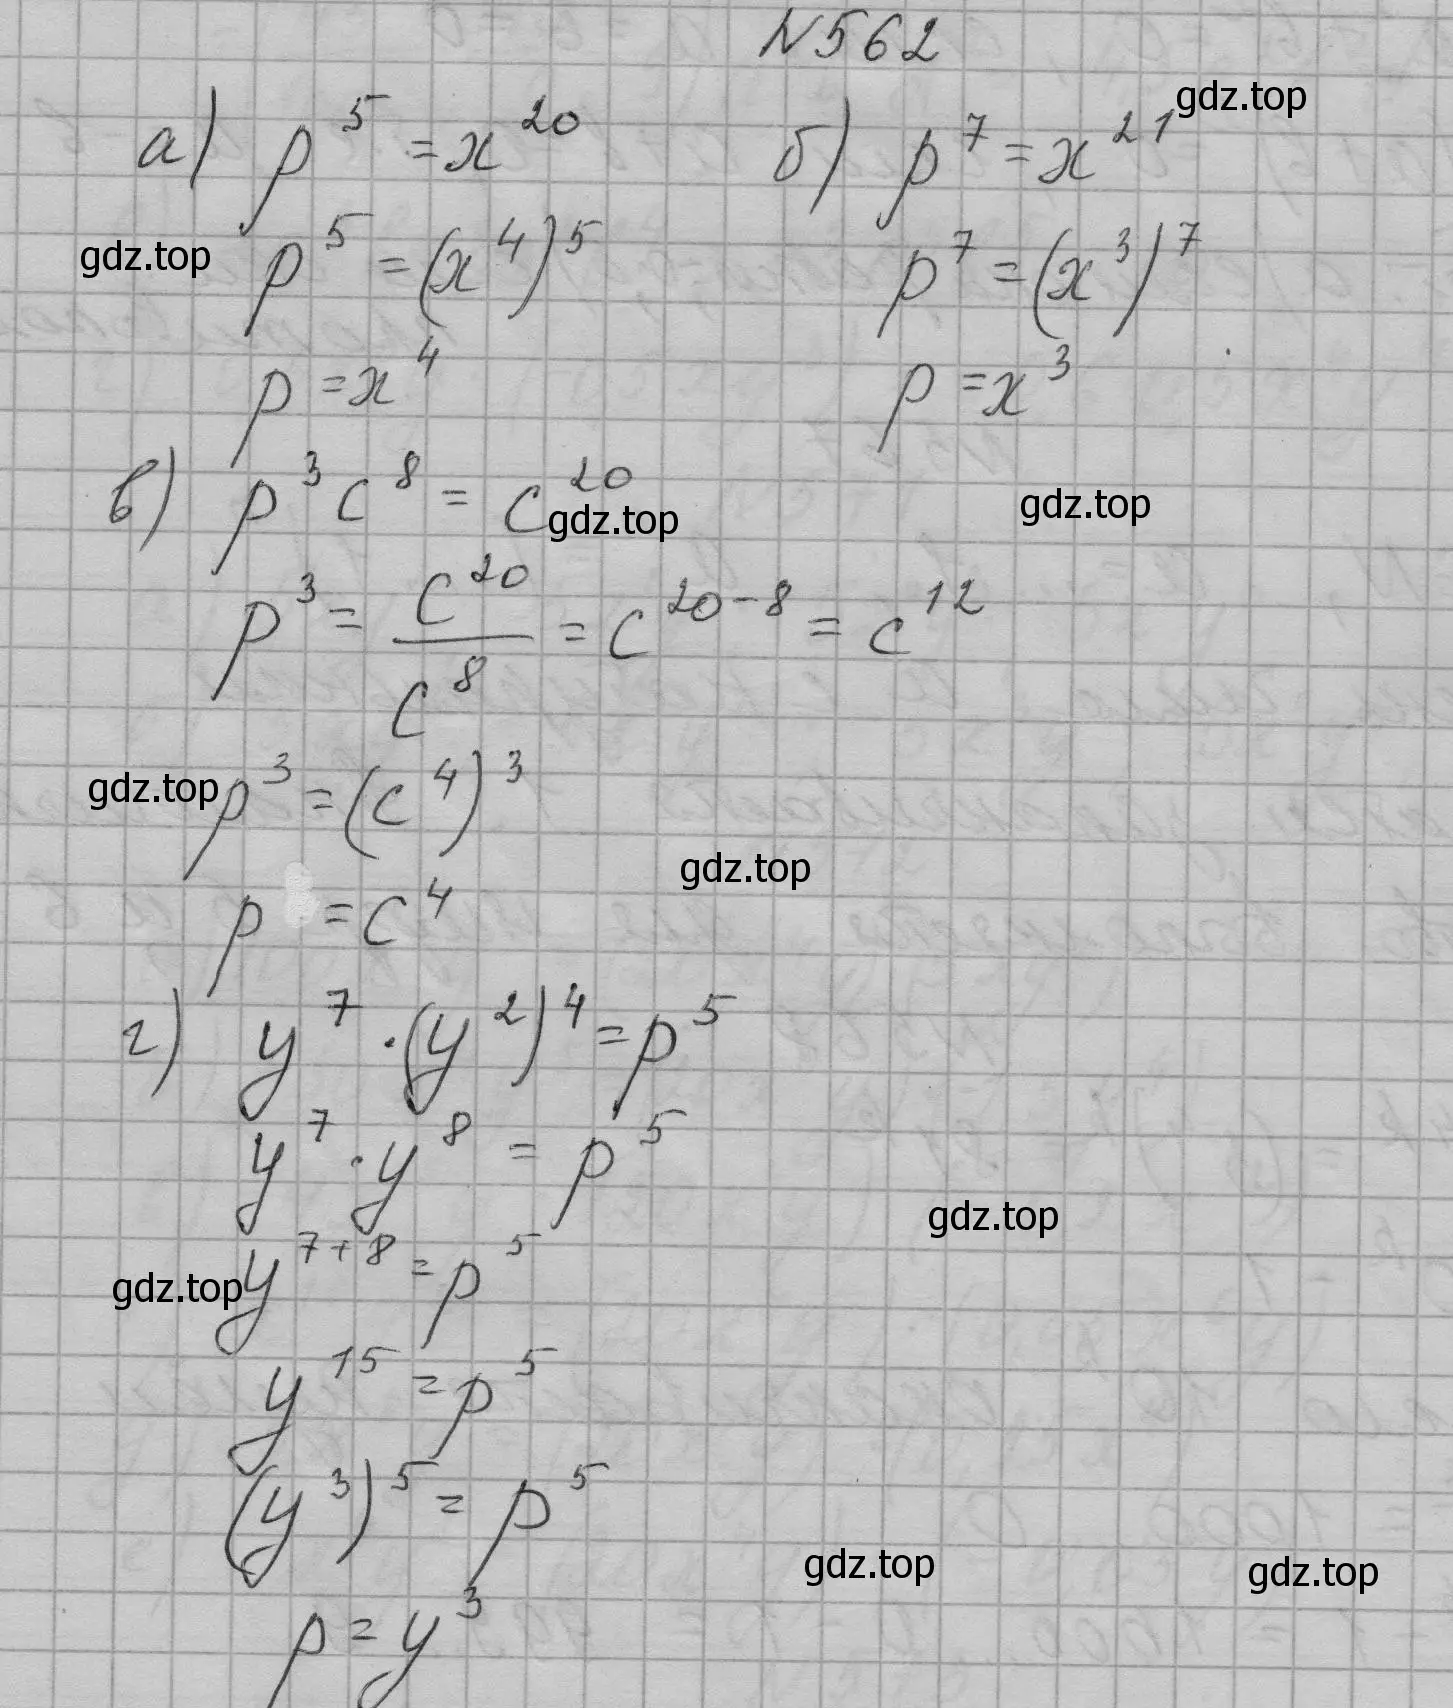 N562
а) p^5 = x^20
p^5 = (x^4)^5
p = x^4
б) p^7 = x^21
p^7 = (x^3)^7
p = x^3
в) p^3 c^8 = c^20
p^3 = c^20/c^8 = c^20-8 = c^12
p^3 = (c^4)^3
p = c^4
г) y^7 · (y^2)^4 = p^5
y^7 · y^8 = p^5
y^7+8 = p^5
y^15 = p^5
(y^3)^5 = p^5
p = y^3
gdz.top
gdz.top
gdz.top
gdz.top
gdz.top
gdz.top
gdz.top
gdz.top
gdz.top
gdz.top